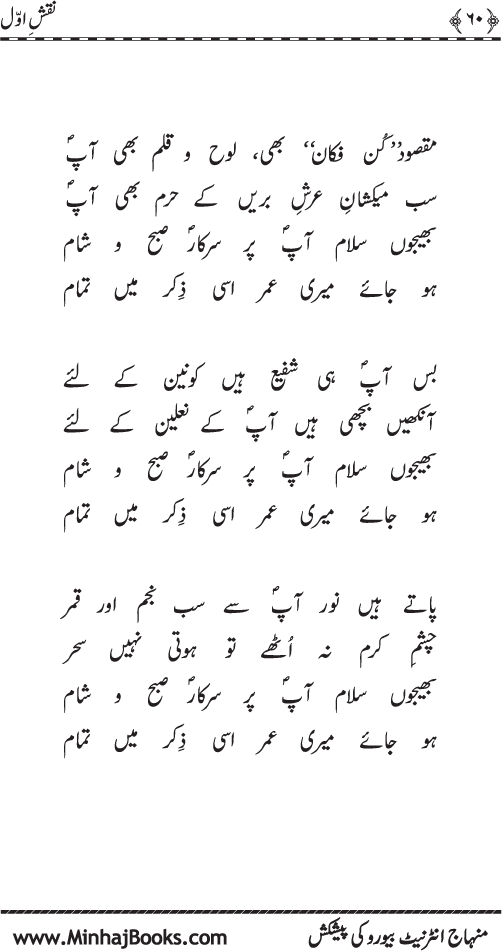 ﴿۶۰﴾ نقشِ اوّل
مقصود’’کُن فکان‘‘ بھی، لوح و قلم بھی آپؐ
سب میکشانِ عرشِ بریں کے حرم بھی آپؐ
بھیجوں سلام آپؐ پر سرکارؐ صبح و شام
ہو جائے میری عمر اسی ذِکر میں تمام
بس آپؐ ہی شفیع ہیں کونین کے لئے
آنکھیں بچھی ہیں آپؐ کے نعلین کے لئے
بھیجوں سلام آپؐ پر سرکارؐ صبح و شام
ہو جائے میری عمر اسی ذِکر میں تمام
پاتے ہیں نور آپؐ سے سب نجم اور قمر
چشمِ کرم نہ اُٹھے تو ہوتی نہیں سحر
بھیجوں سلام آپؐ پر سرکارؐ صبح و شام
ہو جائے میری عمر اسی ذِکر میں تمام
منہاج انٹرنیٹ بیورو کی پیشکش www.MinhajBooks.com